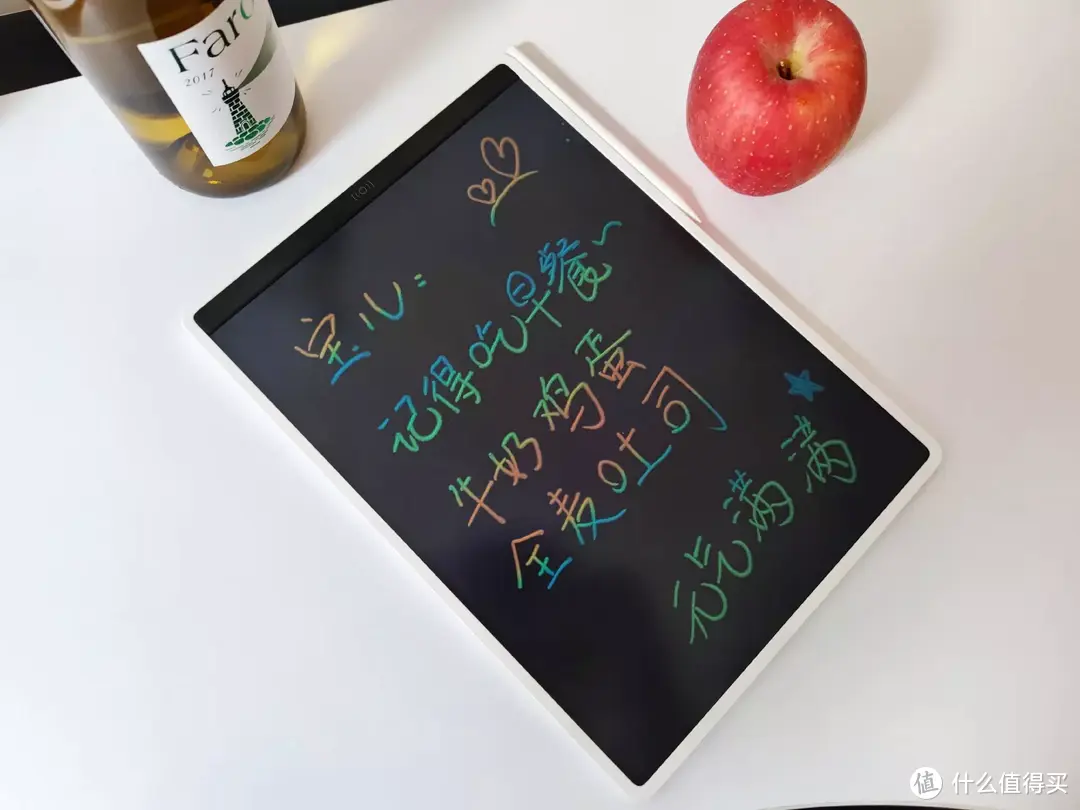 Faro
2017
宝儿：
记得吃早餐~
牛奶鸡蛋
全麦吐司
元气满满
值 什么值得买